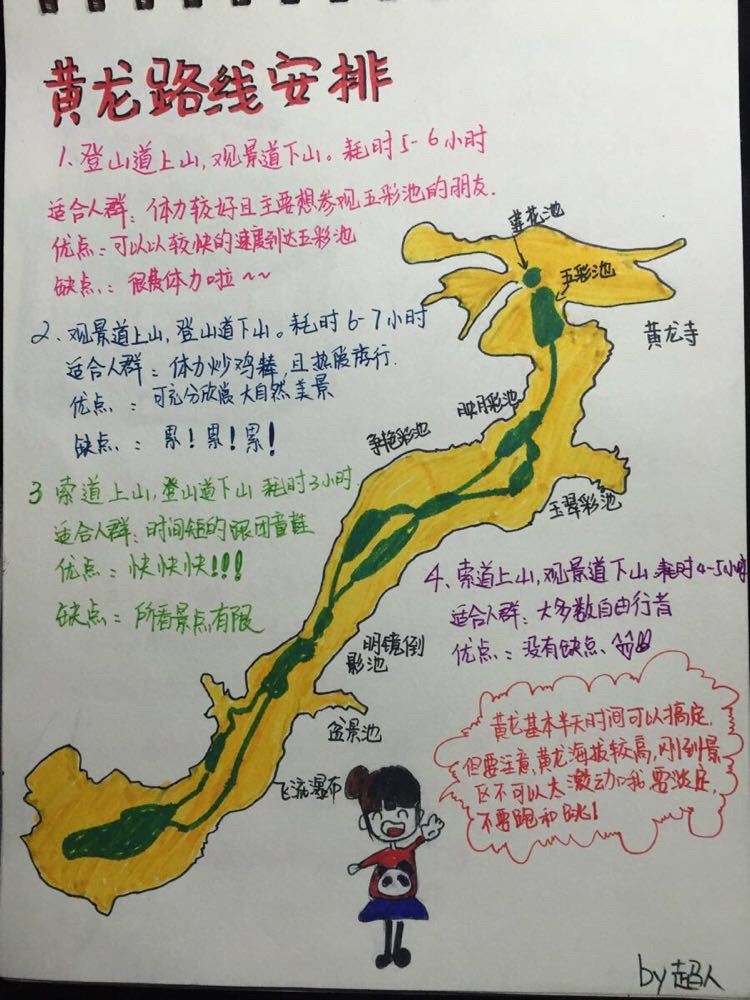 黄龙路线安排
1、登山道上山,观景道下山。耗时5-6小时
适合人群:体力较好且主要想参观五彩池的朋友.
优点:可以以较快的速度到达五彩池
缺点:很费体力啦~~
2、观景道上山,登山道下山。耗时6-7小时
适合人群:体力炒鸡棒,且热爱游行.
优点:可充分欣赏大自然美景
缺点:累!累!累!
3 索道上山,登山道下山 耗时3小时.
适合人群:时间短的跟团童鞋
优点:快快快!!!
缺点:所看景点有限
4、索道上山,观景道下山 耗时4-5小时
适合人群:大多数自由行者
优点:没有缺点、
莲花池
五彩池
黄龙寺
映月彩池
争艳彩池
玉翠彩池
明镜倒
影池
盆景池
飞流瀑布
黄龙基本半天时间可以搞定.
但要注意,黄龙海拔较高,刚到景
区不可以太激动哦 要淡定,
不要跑和跳!
by超人